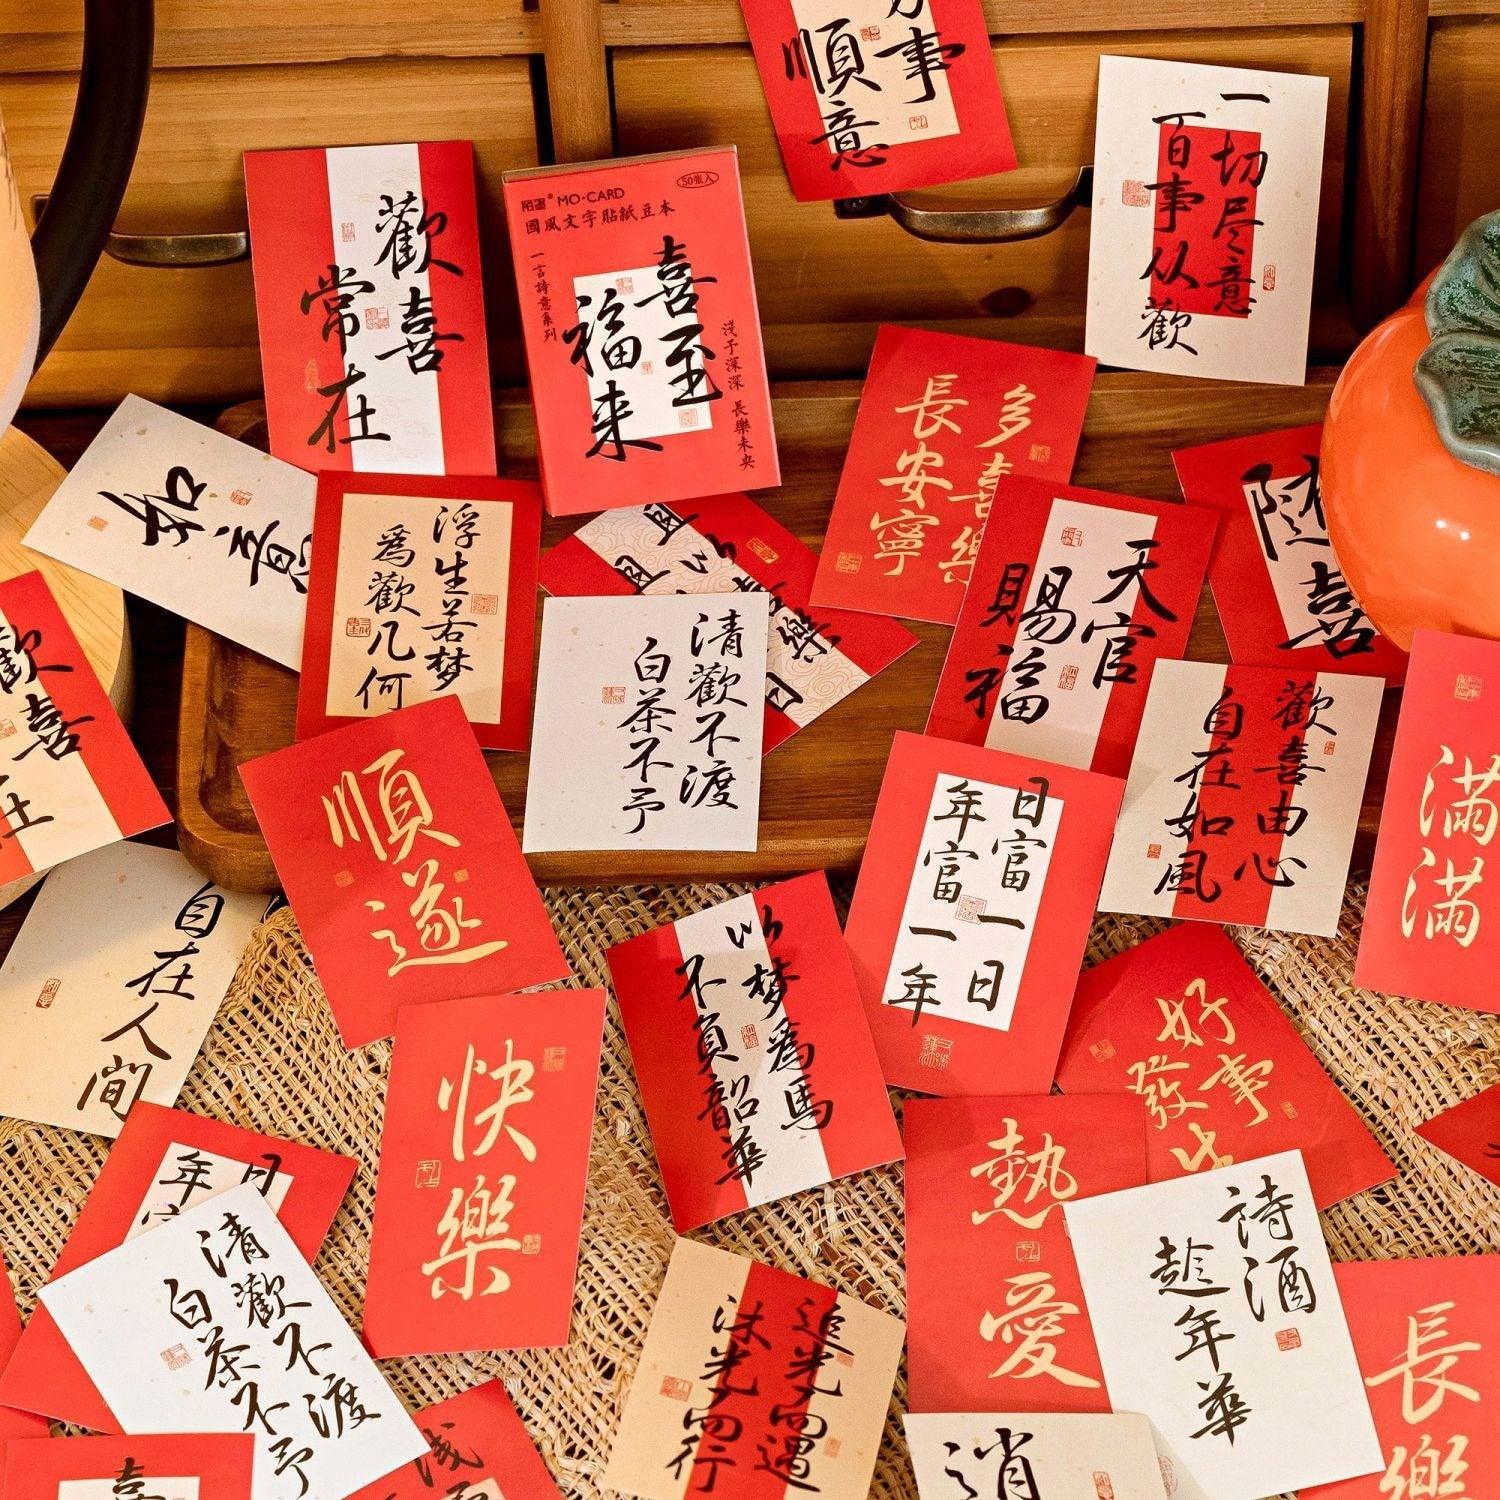 順意
事
一切尽意
百事从歡
歡喜
常在
陌墨® MO·CARD
50张入
國風文字貼紙豆本
一言詩意系列
喜至
福来
淺予深深 長樂未央
多喜樂
長安寧
随
喜
意
浮生若梦
爲歡几何
清歡不渡
白茶不予
天官
賜福
歡喜由心
自在如風
滿
滿
歡喜
順
遂
日富一日
年富一年
自在人間
以梦爲馬
不負韶華
好事
發
快
樂
熱
愛
詩酒
趁年華
日
年
清歡不渡
白茶不予
追光而遇
沐光而行
長
樂
消
喜
浅